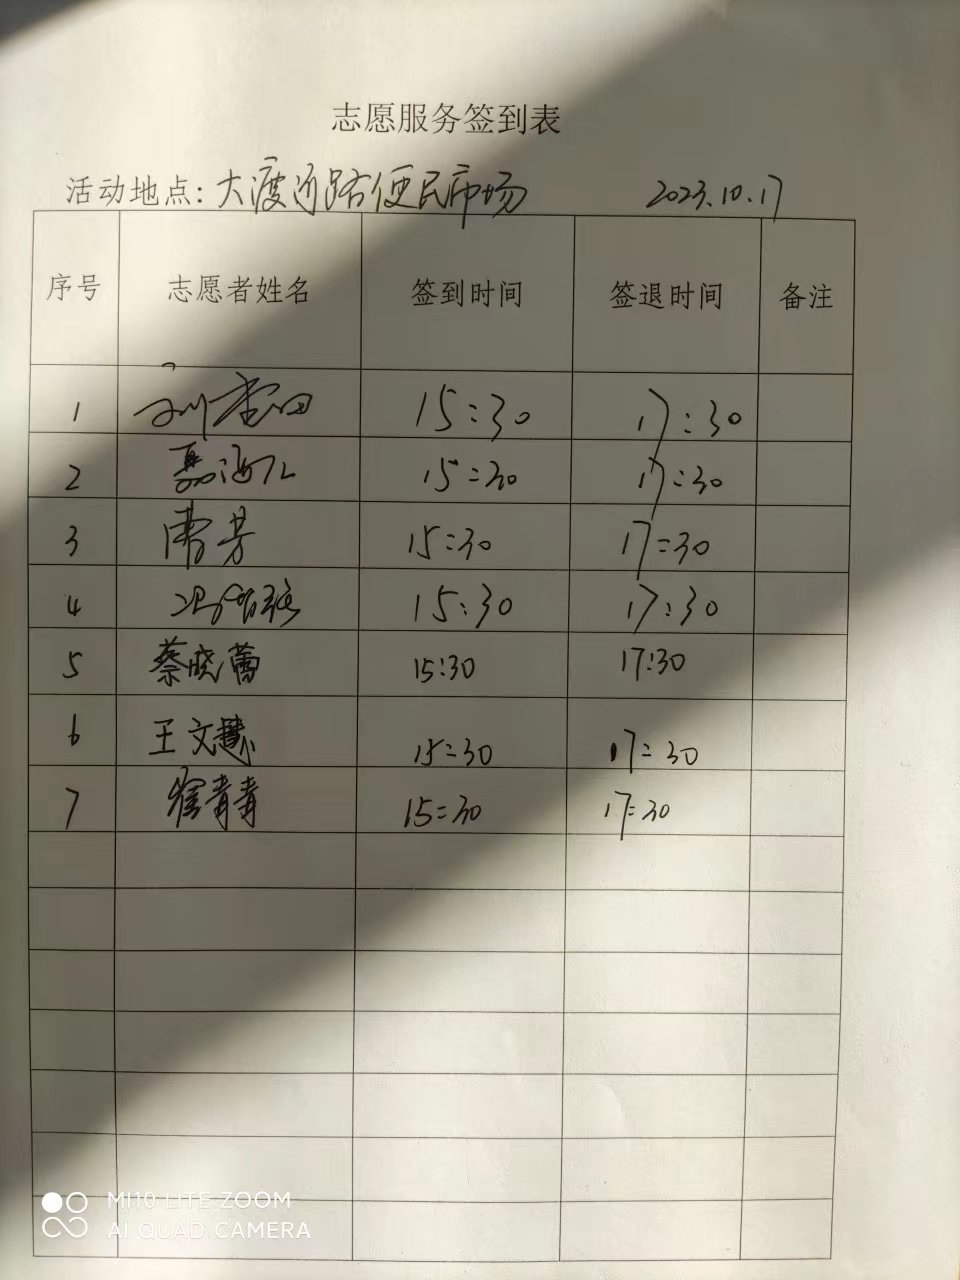 志愿服务签到表
活动地点:大渡河路便民市场 2023.10.17
序号 志愿者姓名 签到时间 签退时间 备注
1 15:30 17:30
2 15:30 17:30
3 曹芳 15:30 17:30
4 15:30 17:30
5 蔡晓蕾 15:30 17:30
6 王文慧 15:30 17:30
7 徐青青 15:30 17:30
MI 10 LITE ZOOM
AI QUAD CAMERA